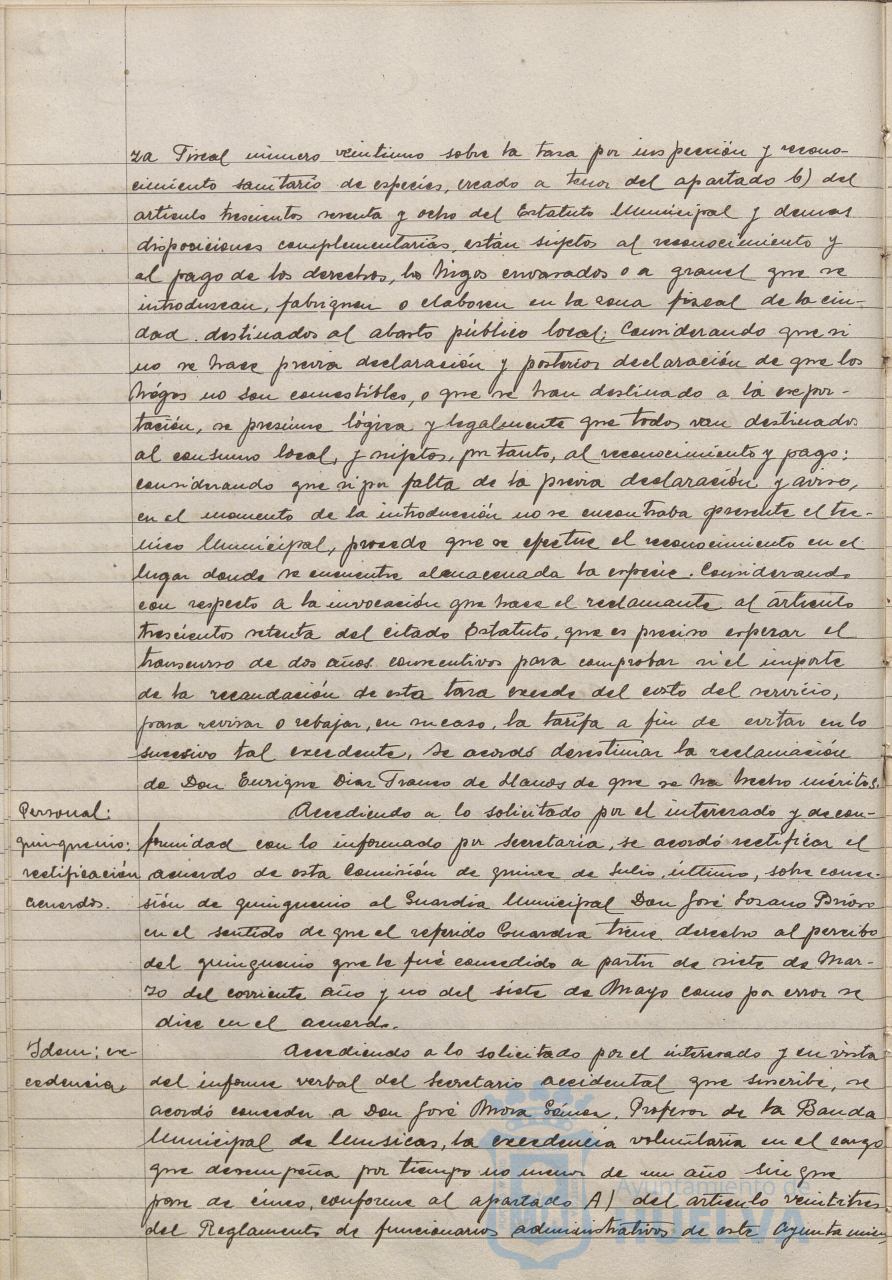 za Fiscal número veintiuno sobre la tasa por inspección y recono-
cimiento sanitario de especies, creado a tenor del apartado b) del
artículo trescientos sesenta y ocho del Estatuto Municipal y demas
disposiciones complementarias, están sujetos al reconocimiento y
al pago de los derechos, los higos envasados o a granel que se
introduzcan, fabriquen o elaboren en la zona fiscal de la ciu-
dad destinados al abasto público local; Considerando que si
no se hace previa declaración y posterior declaración de que los
higos no son comestibles, o que se han destinado a la expor-
tación, se presúme lógica y legalmente que todos van destinados
al consumo local, y sujetos, por tanto, al reconocimiento y pago:
considerando que si por falta de la previa declaración y aviso,
en el momento de la introducción no se encontraba presente el tec-
nico Municipal, procede que se efectue el reconocimiento en el
lugar donde se encuentre almacenada la especie. Considerando
con respecto a la invocación que hace el reclamante al artículo
trescientos setenta del citado Estatuto, que es preciso esperar el
transcurso de dos años consecutivos para comprobar si el importe
de la recaudación de esta tasa excede del costo del servicio,
para revisar o rebajar, en su caso, la tarifa a fin de evitar en lo
sucesivo tal excedente, Se acordó desestimar la reclamación
de Don Enrique Diaz Franco de Llanos de que se ha hecho méritos.
Personal:
quinquenio;
rectificación
acuerdos.
Accediendo a lo solicitado por el interesado y de con-
formidad con lo informado por Secretaría, se acordó rectificar el
acuerdo de esta Comisión de quince de Julio último, sobre conce-
sión de quinquenio al Guardia Municipal Don José Lozano
en el sentido de que el referido Guardia tiene derecho al percibo
del quinquenio que le fué concedido a partir de siete de Mar-
zo del corriente año y no del siete de Mayo como por error se
dice en el acuerdo.
Idem; ex-
cedencia.
Accediendo a lo solicitado por el interesado y en vista
del informe verbal del Secretario accidental que suscribe, se
acordó conceder a Don José Mora Gómez, Profesor de la Banda
Municipal de Músicas, la excedencia voluntaria en el cargo
que desempeña por tiempo no menor de un año sin que
pase de cinco, conforme al apartado A) del artículo veintitres
del Reglamento de funcionarios administrativos de este Ayuntamien-
Ayuntamiento de
HUELVA